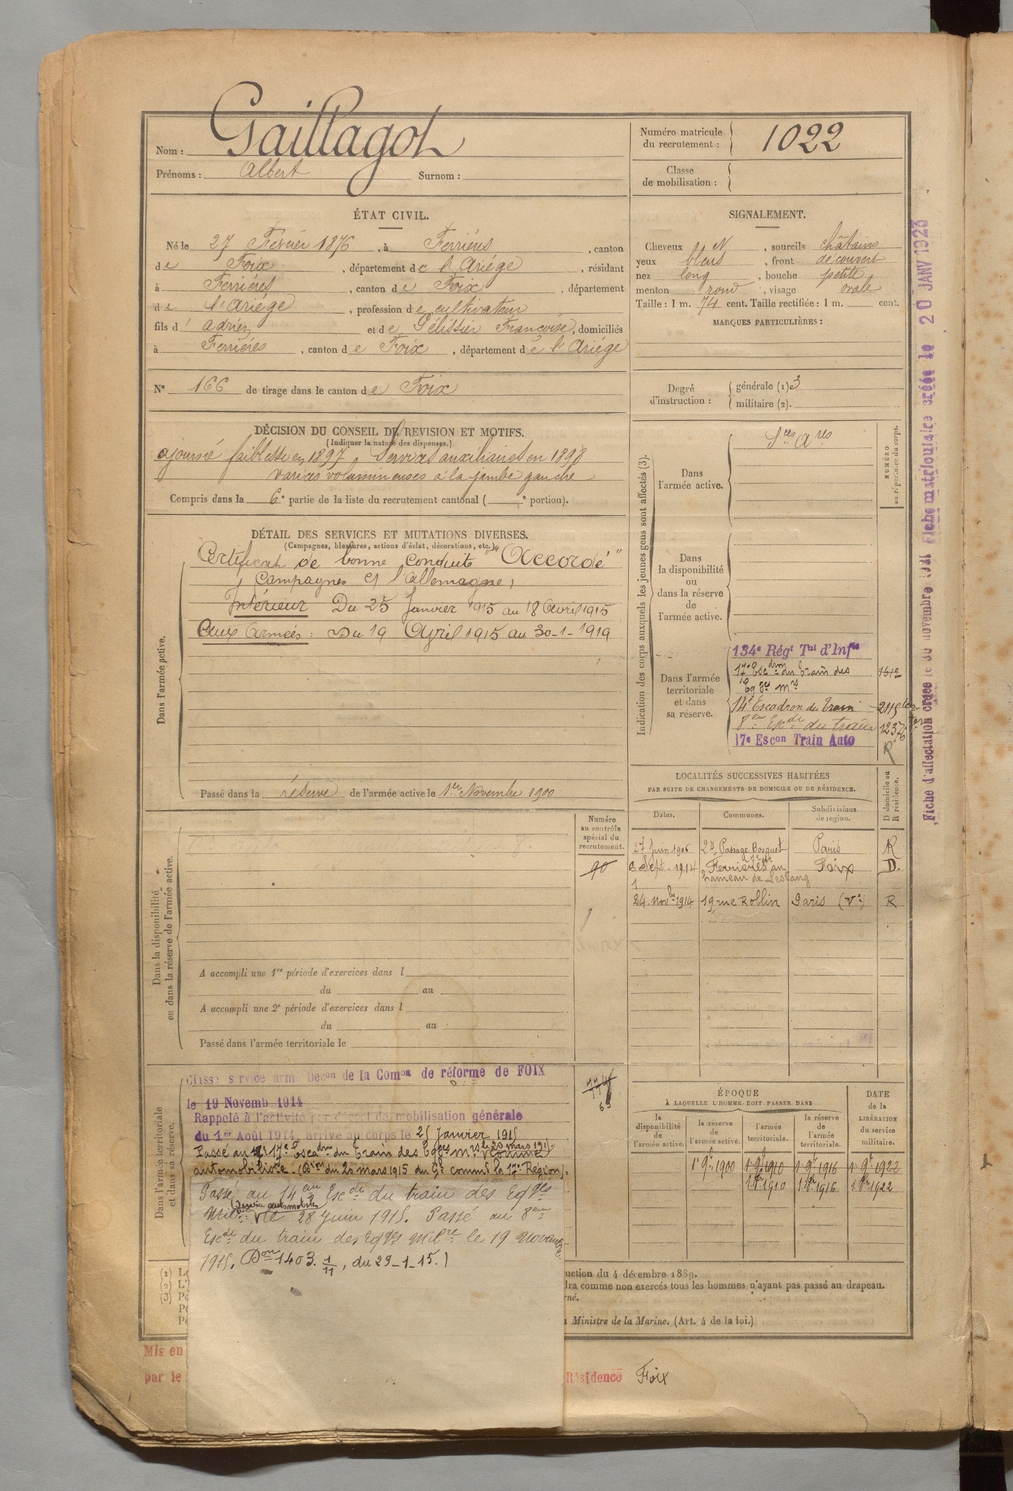 Nom : Gaillagot
Prénoms : Albert Surnom :
Numéro matricule du recrutement : 1022
Classe de mobilisation :
ÉTAT CIVIL.
Né le 27 Février 1876, à Ferrières, canton
de Foix, département de l'Ariége, résidant
à Ferriéres, canton de Foix, département
de l'Ariége, profession de cultivateur
fils d'Adrien et de Pélissier Françoise, domiciliés
à Ferrières, canton de Foix, département de l'Ariége
N° 166 de tirage dans le canton de Foix
SIGNALEMENT.
Cheveux N, sourcils châtains
yeux bleus, front découvert
nez long, bouche petite,
menton rond, visage ovale
Taille : 1 m. 74 cent. Taille rectifiée : 1 m. cent.
MARQUES PARTICULIÈRES :
Degré d'instruction : générale (1) 3
militaire (2).
DÉCISION DU CONSEIL DE REVISION ET MOTIFS.
(Indiquer la nature des dispenses.)
ajourné faiblesse en 1897, Services auxiliaires en 1898
varices volumineuses à la jambe gauche
Compris dans la 6e partie de la liste du recrutement cantonal ( e portion).
DÉTAIL DES SERVICES ET MUTATIONS DIVERSES.
(Campagnes, blessures, actions d'éclat, décorations, etc.)
Dans l'armée active.
Certificat de bonne conduite "Accordé"
Campagnes Cl l'Allemagne,
Intérieur Du 25 Janvier 1915 au 18 Avril 1915
Aux Armées : Du 19 Avril 1915 au 30-1-1919
Passé dans la réserve de l'armée active le 1er Novembre 1900
Indication des corps auxquels les jeunes gens sont affectés (3).
NUMÉRO au répertoire du corps.
Dans l'armée active.
Sces Ares
Dans la disponibilité ou dans la réserve de l'armée active.
Dans l'armée territoriale et dans sa réserve.
134e Régt Tal d'Infie
17e Escdron du Train des
Eqges Mres
14e Escadron du Train
8eme Escdr du train
17e Escon Train Auto
R
LOCALITÉS SUCCESSIVES HABITÉES
PAR SUITE DE CHANGEMENTS DE DOMICILE OU DE RÉSIDENCE.
Dates. Communes. Subdivisions de région. D domicile ou R résidence.
27 Juin 1906 Passage Bosquet Paris R
Sept. 1914 Ferrières au hameau de Lestang Foix D.
24 novbre 1914 19 rue Rollin Paris (Ve) R
Dans la disponibilité ou dans la réserve de l'armée active.
Numéro au contrôle spécial du recrutement.
90
A accompli une 1re période d'exercices dans l
du au
A accompli une 2e période d'exercices dans l
du au
Passé dans l'armée territoriale le
Dans l'armée territoriale et dans sa réserve.
Classé service armé Décon de la Comon de réforme de FOIX
le 19 Novemb 1914
Rappelé à l'activité par décret de mobilisation générale
du 1er Août 1914, arrivé au corps le 25 Janvier 1915
Passé au 17e Escadron du Train des Eqges Mres le 20 mars 1915. Comme
automobiliste. (Don du 20 mars 1915 du Gl commt la 17me Région).
Passé au 14eme Escdr du train des Eqges
Milres (Service automobile) le 28 Juin 1915. Passé au 8eme
Escdr du train des Eqges Milre le 19 Novemb.
1915. (Don 1403. 1/11, du 29-1-15.)
ÉPOQUE
A LAQUELLE L'HOMME DOIT PASSER DANS
la disponibilité de l'armée active. la réserve de l'armée active. l'armée territoriale. la réserve de l'armée territoriale.
DATE de la LIBÉRATION du service militaire.
1er 9bre 1900 1er 9bre 1910 1er 9bre 1916 1er 9bre 1922
1910 1916 1922
(1)
(2)
(3)
uction du 4 décembre 1889.
dra comme non exercés tous les hommes n'ayant pas passé au drapeau.
Ministre de la Marine. (Art. 4 de la loi.)
Mis en
par le
Résidence Foix
Fiche d'affectation créée le 30 novembre 1921 Fiche matriculaire créée le 20 JANV 1923